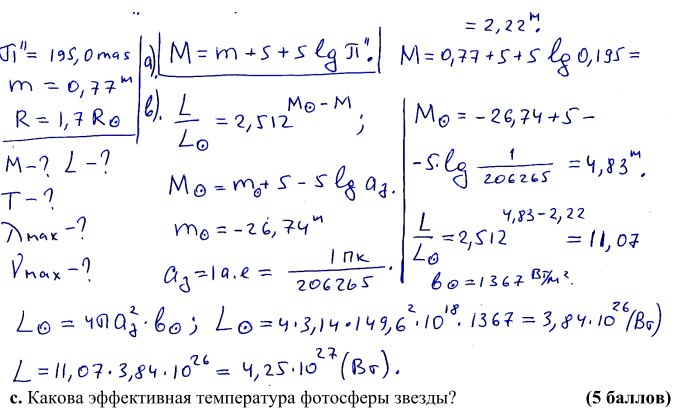 π" = 195,0 mas
m = 0,77ᵐ
R = 1,7 R⊙
M - ? L - ?
T - ?
λmax - ?
νmax - ?
а). M = m + 5 + 5 lg π".
в). L/L⊙ = 2,512^(M⊙ - M) ;
M⊙ = m⊙ + 5 - 5 lg a₃.
m⊙ = -26,74ᵐ
a₃ = 1 а.е = 1 пк/206265 .
M = 0,77 + 5 + 5 lg 0,195 =
= 2,22ᵐ.
M⊙ = -26,74 + 5 -
- 5. lg 1/206265 = 4,83ᵐ.
L/L⊙ = 2,512^(4,83 - 2,22) = 11,07
b⊙ = 1367 Вт/м².
L⊙ = 4π a₃² · b⊙ ; L⊙ = 4 · 3,14 · 149,6² · 10¹⁸ · 1367 = 3,84 · 10²⁶ (Вт)
L = 11,07 · 3,84 · 10²⁶ = 4,25 · 10²⁷ (Вт).
c. Какова эффективная температура фотосферы звезды? (5 баллов)